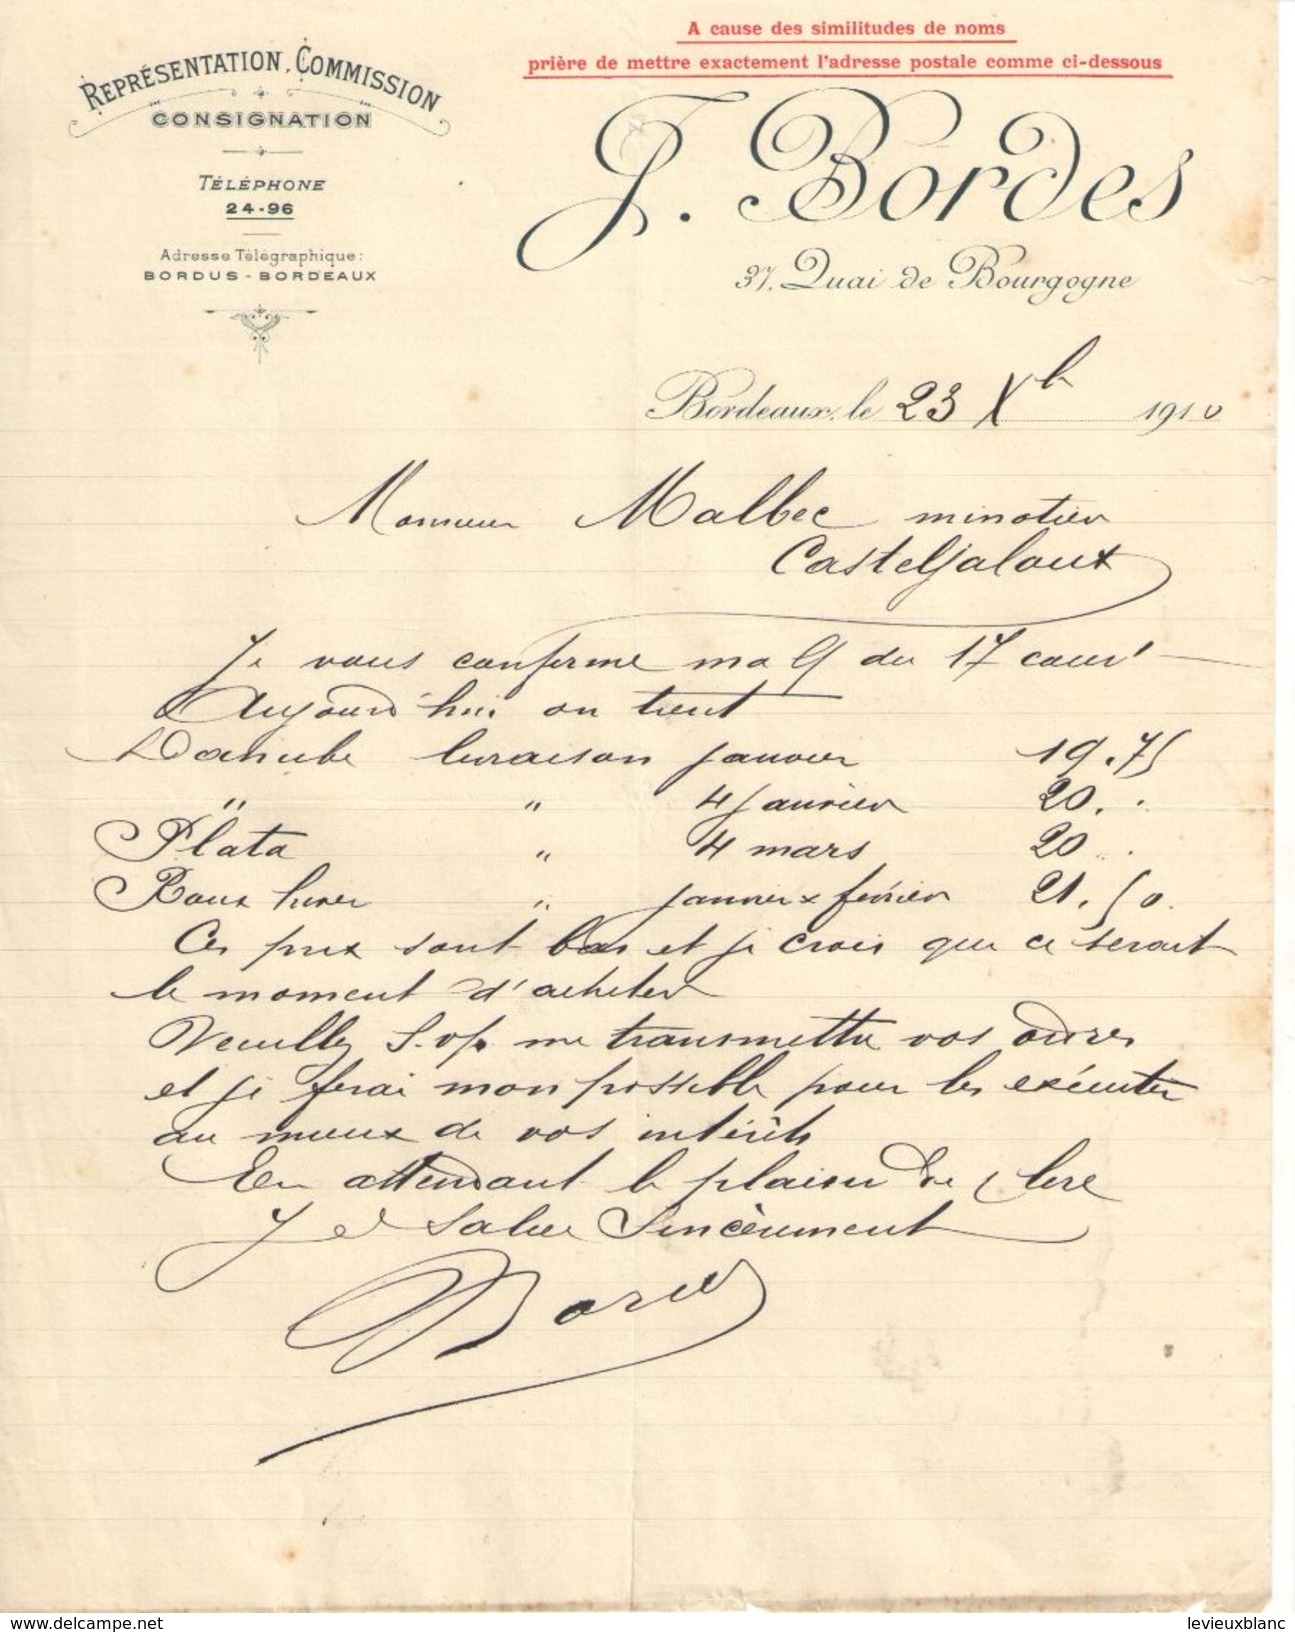 A cause des similitudes de noms
prière de mettre exactement l'adresse postale comme ci-dessous
REPRÉSENTATION, COMMISSION
CONSIGNATION
TÉLÉPHONE
24-96
Adresse Télégraphique:
BORDUS - BORDEAUX
J. Bordes
37, Quai de Bourgogne
Bordeaux, le 23 Xb 1910
Monsieur Malbec minotier
Casteljaloux
Je vous confirme ma du 17 cour'
Aujourd'hui on tient
Danube livraison janvier 19.75
" " 4 janvier 20. .
Plata " 4 mars 20 . .
Roux hiver " janvier x février 21.50.
Ces prix sont bas et je crois que ce serait
le moment d'acheter
Veuillez S.v.p. me transmettre vos ordres
et je ferai mon possible pour les exécuter
au mieux de vos intérêts
En attendant le plaisir de lire
J et Salue Sincèrement
Bordes
www.delcampe.net
levieuxblanc